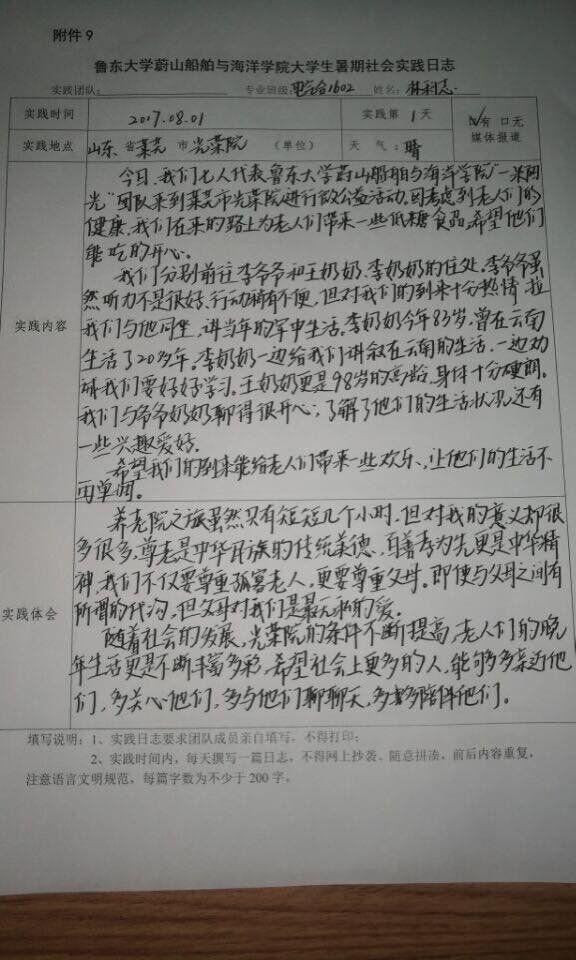 附件 9
鲁东大学蔚山船舶与海洋学院大学生暑期社会实践日志
实践团队: 专业班级: 电气合1602 姓名: 林利志
实践时间 2017.08.01 实践第 1 天 ☑有 口无
媒体报道
实践地点 山东 省 莱芜 市 光荣院 (单位) 天 气: 晴
实践内容
今日,我们七人代表鲁东大学蔚山船舶与海洋学院"一米阳
光"团队来到莱芜市光荣院进行敬公益活动。因考虑到老人们的
健康,我们在来的路上为老人们带来一些低糖食品,希望他们
能吃的开心。
我们分别前往李爷爷和王奶奶、李奶奶的住处。李爷爷虽
然听力不是很好、行动稍有不便,但对我们的到来十分热情,拉
我们与他同坐,讲当年的军中生活。李奶奶今年83岁,曾在云南
生活了20多年。李奶奶一边给我们讲叙在云南的生活、一边劝
我们要好好学习。王奶奶更是98岁的高龄,身体十分硬朗。
我们与爷爷奶奶聊得很开心,了解了他们的生活状况还有
一些兴趣爱好.
希望我们的到来能给老人们带来一些欢乐、让他们的生活不
再单调。
实践体会
养老院之旅虽然只有短短几个小时,但对我的意义却很
多很多,尊老是中华民族的传统美德,百善孝为先更是中华精
神,我们不仅要尊重孤寡老人,更要尊重父母。即使与父母之间有
所谓的代沟,但父母对我们是最无私的爱。
随着社会的发展,光荣院的条件不断提高,老人们的晚
年生活更是不断丰富多彩,希望社会上更多的人,能够多亲近他
们,多关心他们,多与他们聊聊天,多多陪伴他们。
填写说明: 1、实践日志要求团队成员亲自填写,不得打印;
2、实践时间内,每天撰写一篇日志,不得网上抄袭、随意拼凑,前后内容重复,
注意语言文明规范,每篇字数为不少于 200 字。